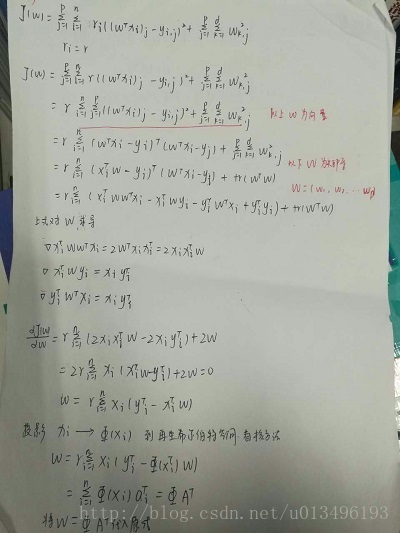 J(w) = Σ_{j=1}^{p} Σ_{i=1}^{n} r_i((w^T x_i)_j - y_{i,j})² + Σ_{j=1}^{p} Σ_{k=1}^{d} w²_{k,j}
r_i = r
J(w) = Σ_{j=1}^{p} Σ_{i=1}^{n} r((w^T x_i)_j - y_{i,j})² + Σ_{j=1}^{p} Σ_{k=1}^{d} w²_{k,j}
= r Σ_{i=1}^{n} Σ_{j=1}^{p} ((w^T x_i)_j - y_{i,j})² + Σ_{j=1}^{p} Σ_{k=1}^{d} w²_{k,j} 以上 w 为向量
= r Σ_{i=1}^{n} (w^T x_i - y_i)^T (w^T x_i - y_i) + Σ_{j=1}^{p} Σ_{k=1}^{d} w²_{k,j}
= r Σ_{i=1}^{n} (x_i^T w - y_i)^T (w^T x_i - y_i) + tr(w^T w) 以下 W 为矩阵
W = (w_1, w_2, ... w_p)
= r Σ_{i=1}^{n} (x_i^T w w^T x_i - x_i^T w y_i - y_i^T w^T x_i + y_i^T y_i) + tr(w^T w)
上式对 W 求导
▽ x_i^T w w^T x_i = 2 w^T x_i x_i^T = 2 x_i x_i^T w
▽ x_i^T w y_i = x_i y_i^T
▽ y_i^T w^T x_i = x_i y_i^T
∂J(w)/∂w = r Σ_{i=1}^{n} (2 x_i x_i^T w - 2 x_i y_i^T) + 2w
= 2r Σ_{i=1}^{n} x_i (x_i^T w - y_i^T) + 2w = 0
w = r Σ_{i=1}^{n} x_i (y_i^T - x_i^T w)
投影 x_i → Φ(x_i) 到再生希尔伯特空间
W = r Σ_{i=1}^{n} x_i (y_i^T - Φ(x_i^T) w)
= Σ_{i=1}^{n} Φ(x_i) a_i^T = Φ A^T
将 W = Φ A^T 代入原式
http://blog.csdn.net/u013496193